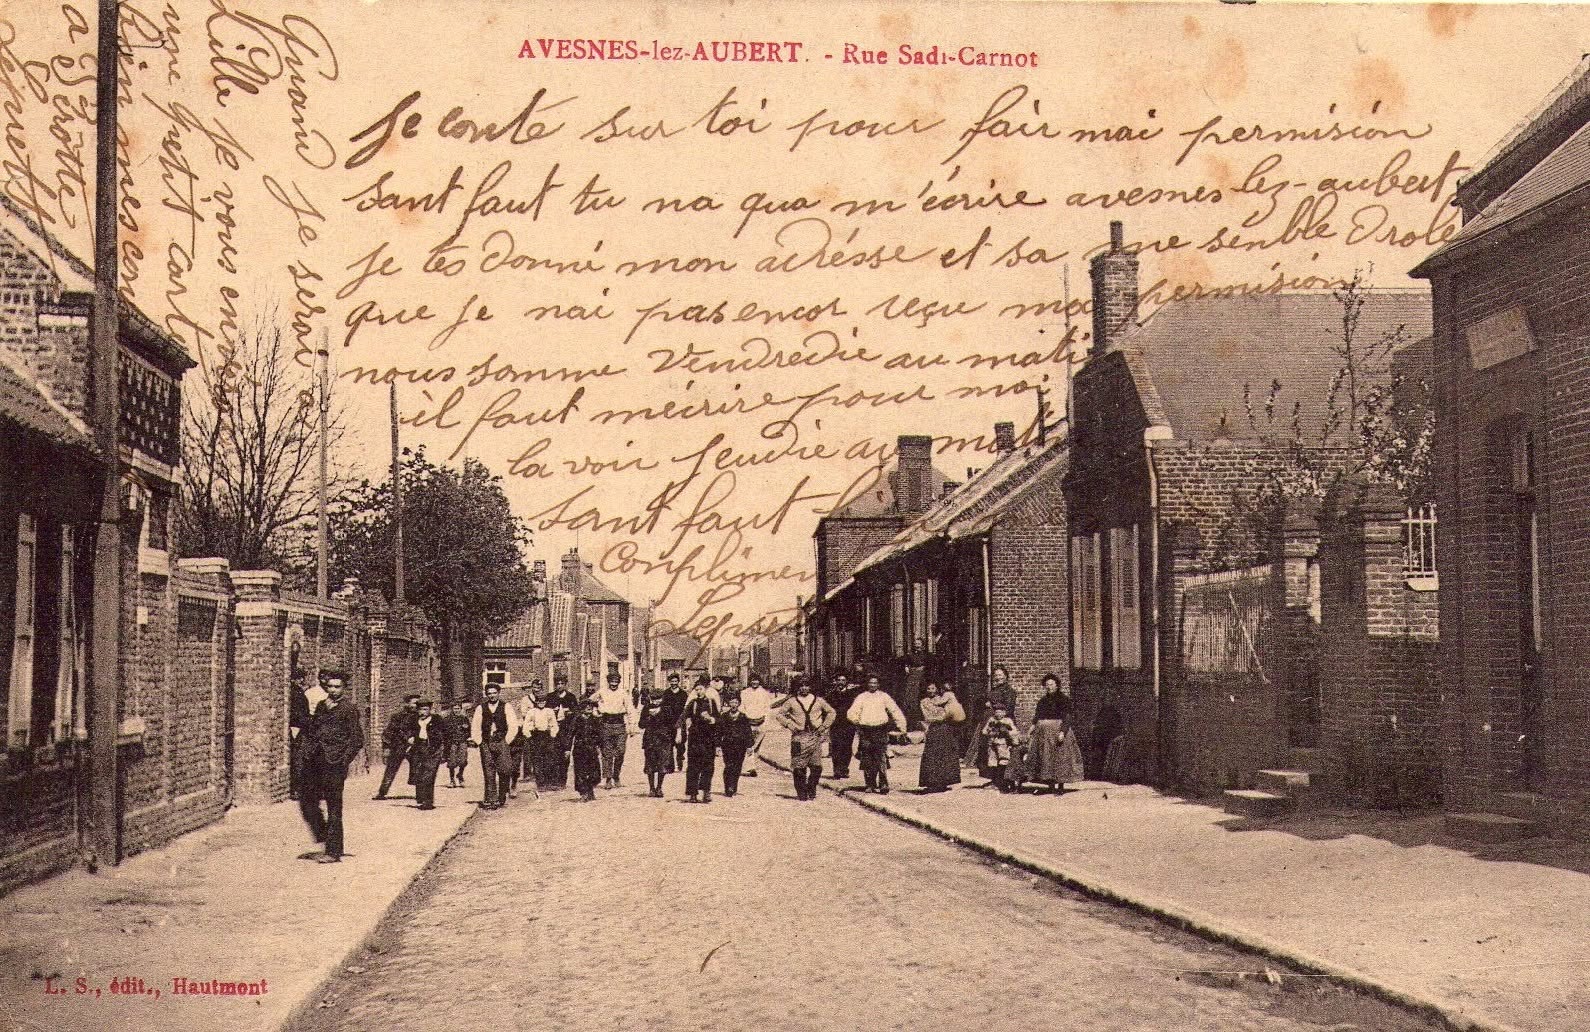 AVESNES-lez-AUBERT. - Rue Sadi-Carnot
Je conte sur toi pour fair mai permision
sant faut tu na qua m'écrire avesnes lez-aubert
je tes donné mon adrésse et sa me senble drole
que je nai pas encor reçu ma permision
nous somme Vendredie au mati
il faut mécrire pour moi
la voir Jeudie au mati
sant faut
Conplimen
Quand je serai a
Lille je vous enverai
une petit cart
bien mes con
a Gérotte
L. S., édit., Hautmont